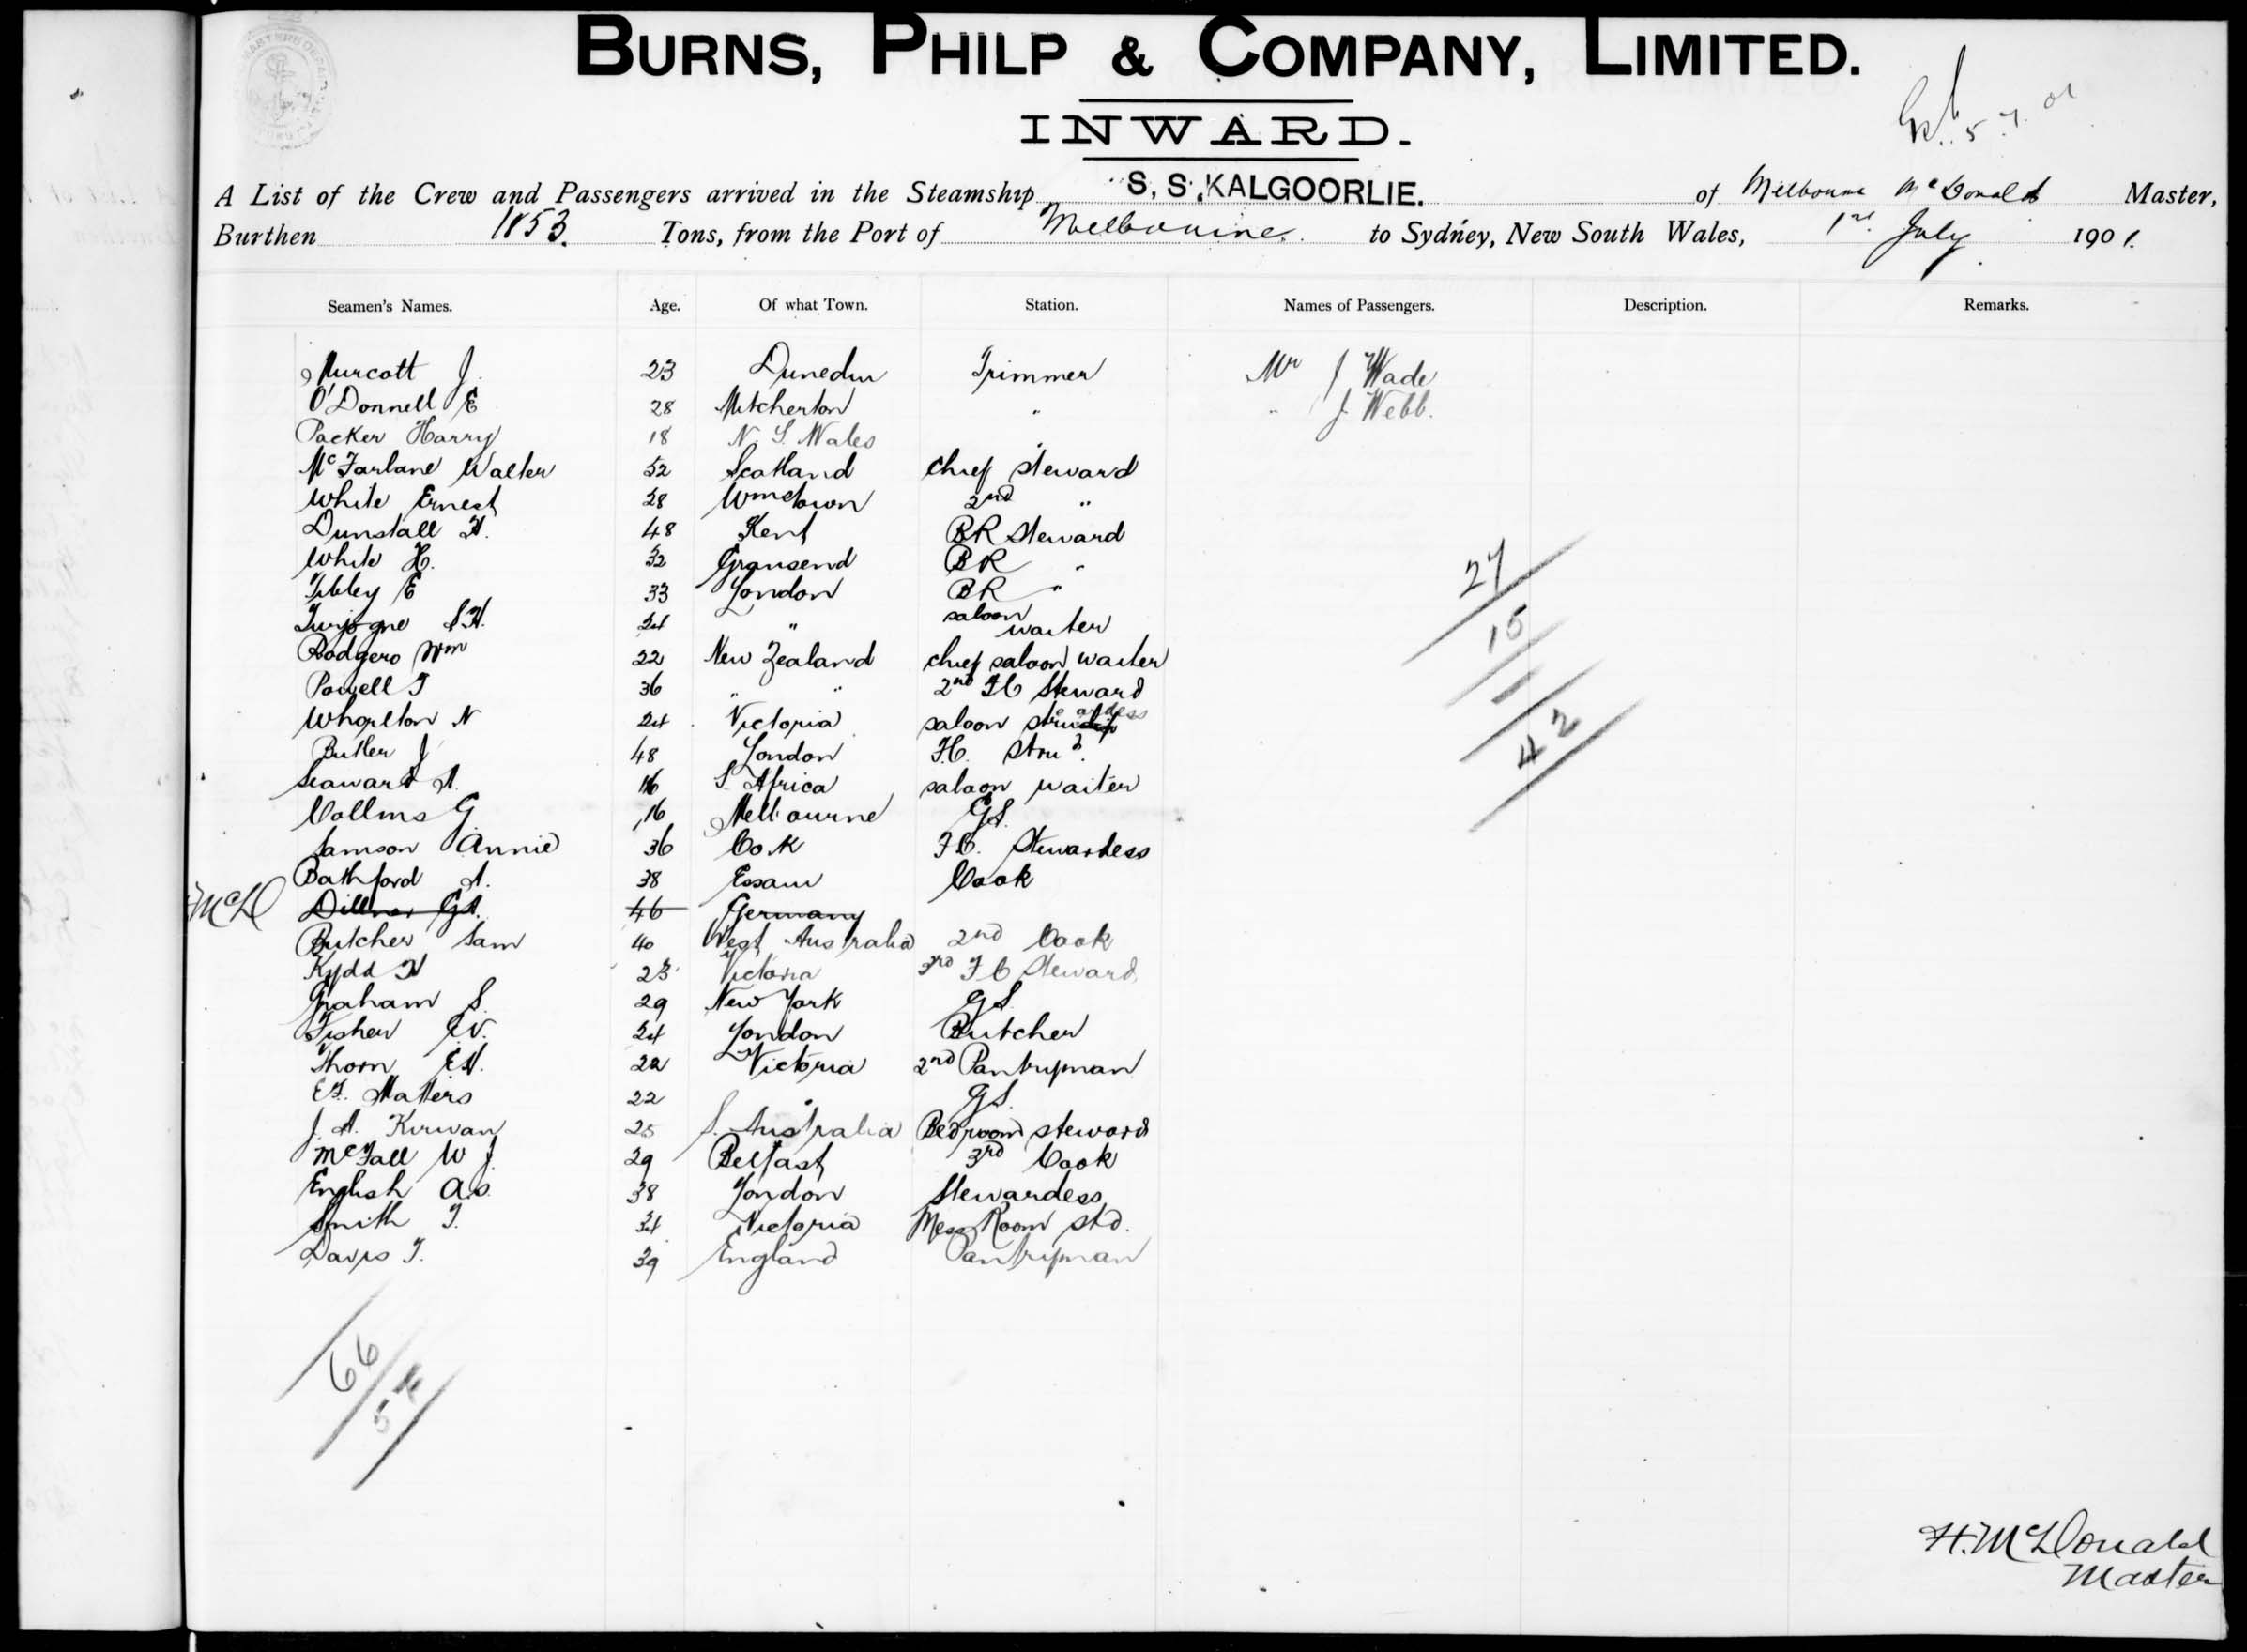 BURNS, PHILP & COMPANY, LIMITED.
INWARD.
5.7.01
A List of the Crew and Passengers arrived in the Steamship S.S. KALGOORLIE. of Melbourne McDonald Master,
Burthen 1853. Tons, from the Port of Melbourne. to Sydney, New South Wales, 1st July 1901.
Seamen's Names. Age. Of what Town. Station. Names of Passengers. Description. Remarks.
Murcott J. 23 Dunedin Trimmer Mr J Wade
O'Donnell E 28 Mitcherton " " J. Webb.
Packer Harry 18 N. S. Wales "
McFarlane Walter 52 Scotland chief steward
White Ernest 28 Wmstown 2nd "
Dunstall H. 48 Kent BR Steward
White H. 32 Gravsend BR "
Tibley E 33 London BR "
24 " saloon waiter
Rodgers Wm 22 New Zealand chief saloon waiter
Powell T 36 " " 2nd FC Steward
Whorlton N 24 Victoria saloon
Butler J 48 London F.C.
Seaward A. 16 S. Africa saloon waiter
Collins G 16 Melbourne GS.
Samson Annie 36 Cork F.C. Stewardess
Bathford A. 38 Cook
McD 46 Germany
Butcher Sam 40 West Australia 2nd Cook
Kydd H 23 Victoria 3rd FC Steward
Graham S. 29 New York GS
Fisher 24 London Butcher
Thorn EH. 22 Victoria 2nd Pantryman
E.F. Matters 22 " GS.
J. A. Kirwan 25 S. Australia Bedroom steward
McFall W J. 29 Belfast 3rd Cook
English A.S. 38 London Stewardess
Smith T. 34 Victoria Mess Room std.
Davis T. 39 England Pantryman
27
15
42
66
54
H. McDonald
Master